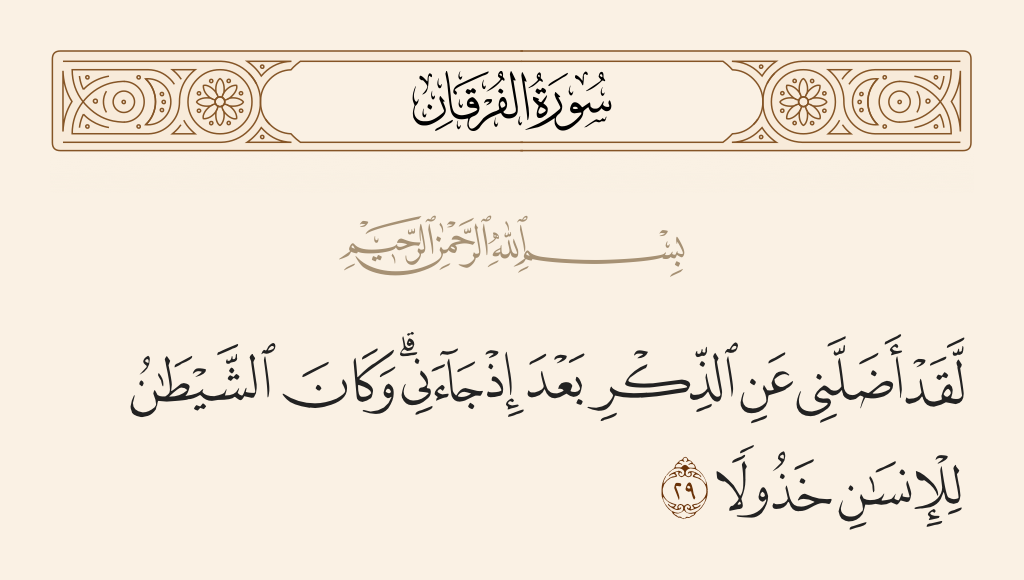 سُورَةُ الفُرْقَانِ
بِسْمِ ٱللَّهِ ٱلرَّحْمَٰنِ ٱلرَّحِيمِ
لَّقَدْ أَضَلَّنِى عَنِ ٱلذِّكْرِ بَعْدَ إِذْ جَآءَنِى ۗ وَكَانَ ٱلشَّيْطَٰنُ
لِلْإِنسَٰنِ خَذُولًا ٢٩